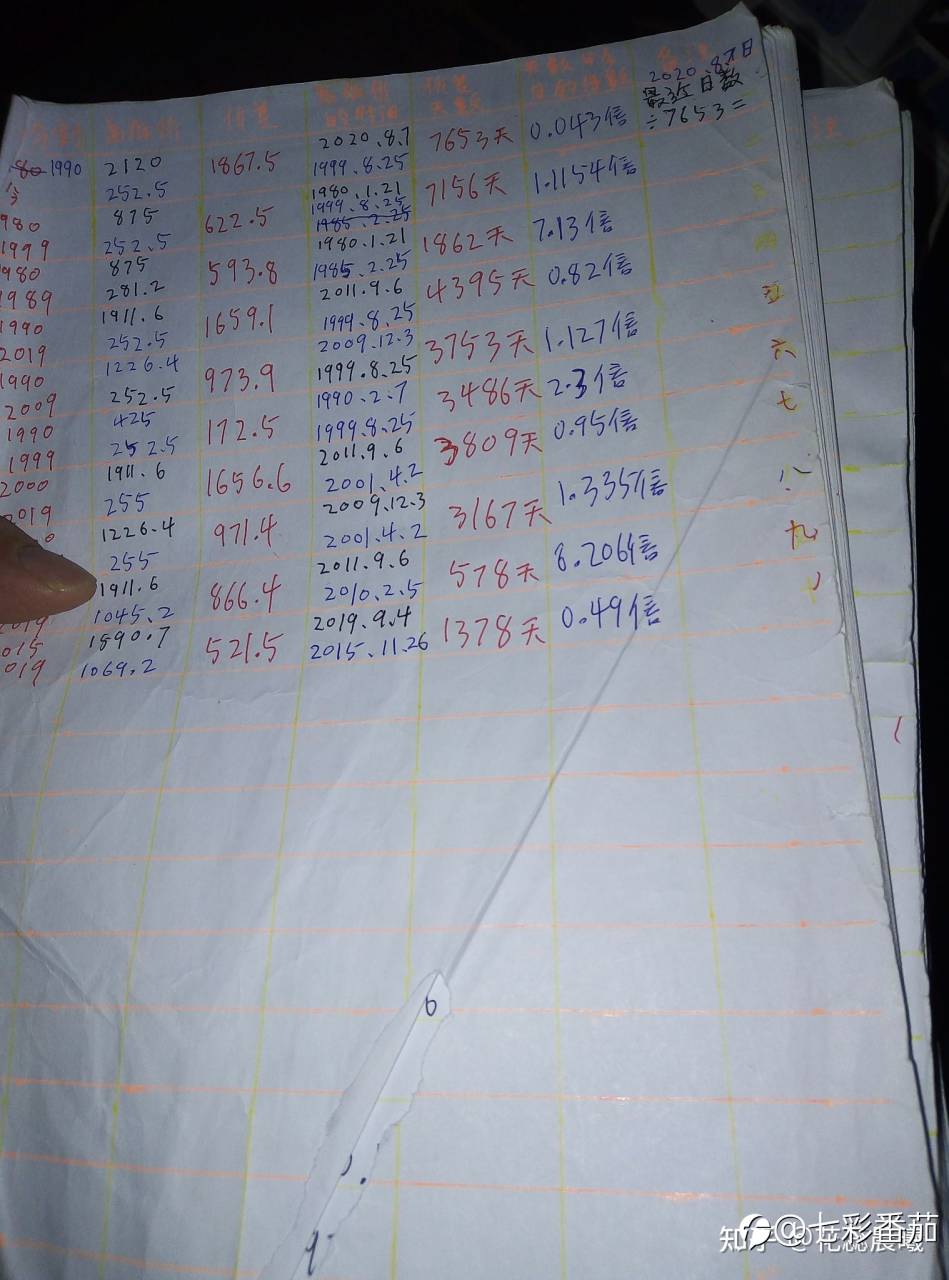 高低价 价差 高低价的时间 价差天数 2020.8.7日
最近日数
÷7653=
80 1990 2120 1867.5 2020.8.7 7653天 0.043倍
今 252.5 1999.8.25
980 875 622.5 1980.1.21 7156天 1.1154倍
1999.8.25
1999 252.5 1985.2.25
980 875 593.8 1980.1.21 1862天 7.13倍
1989 281.2 1985.2.25
1990 1911.6 1659.1 2011.9.6 4395天 0.82倍
2019 252.5 1999.8.25 五
1990 1226.4 973.9 2009.12.3 3753天 1.127倍
2009 252.5 1999.8.25 六
1990 425 172.5 1990.2.7 3486天 2.3倍
1999 252.5 1999.8.25 七
2000 1911.6 1656.6 2011.9.6 3809天 0.95倍
2019 255 2001.4.2 八
1226.4 971.4 2009.12.3 3167天 1.335倍
255 2001.4.2 九
1911.6 866.4 2011.9.6 578天 8.206倍
2019 1045.2 2010.2.5
015 1590.7 521.5 2019.9.4 1378天 0.49倍
019 1069.2 2015.11.26
6
知乎 @花蕊晨曦
@七彩番茄